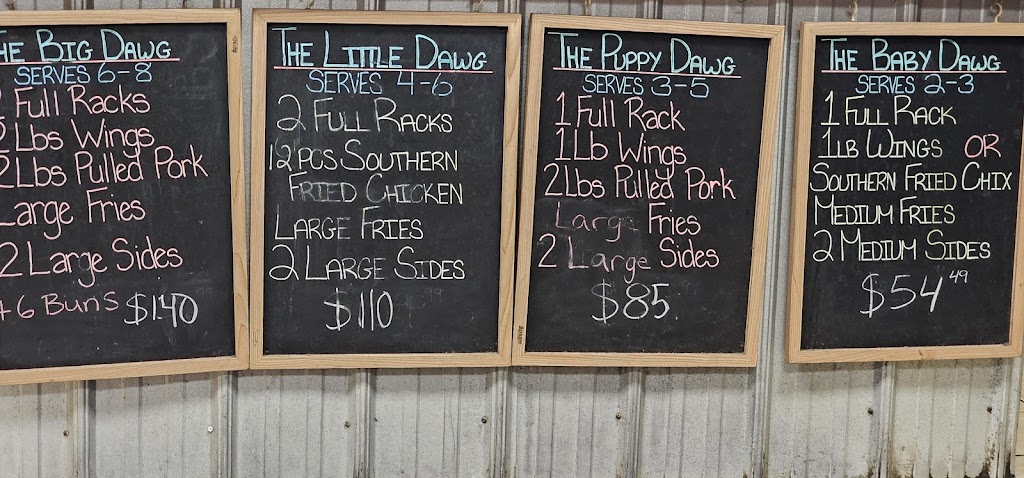 HE BIG DAWG
SERVES 6-8
2 FULL RACKS
2 Lbs WINGS
2 Lbs Pulled PORK
Large Fries
2 Large Sides
+6 BUNS $140
THE LITTLE DAWG
SERVES 4-6
2 FULL RACKS
12 PCS SOUTHERN
FRIED CHICKEN
LARGE FRIES
2 LARGE SIDES
$110
THE PUPPY DAWG
SERVES 3-5
1 FULL RACK
1Lb Wings
2Lbs Pulled Pork
Large Fries
2 Large Sides
$85
THE BABY DAWG
SERVES 2-3
1 FULL RACK
1LB WINGS OR
SOUTHERN FRIED CHIX
MEDIUM FRIES
2 MEDIUM SIDES
$54.49